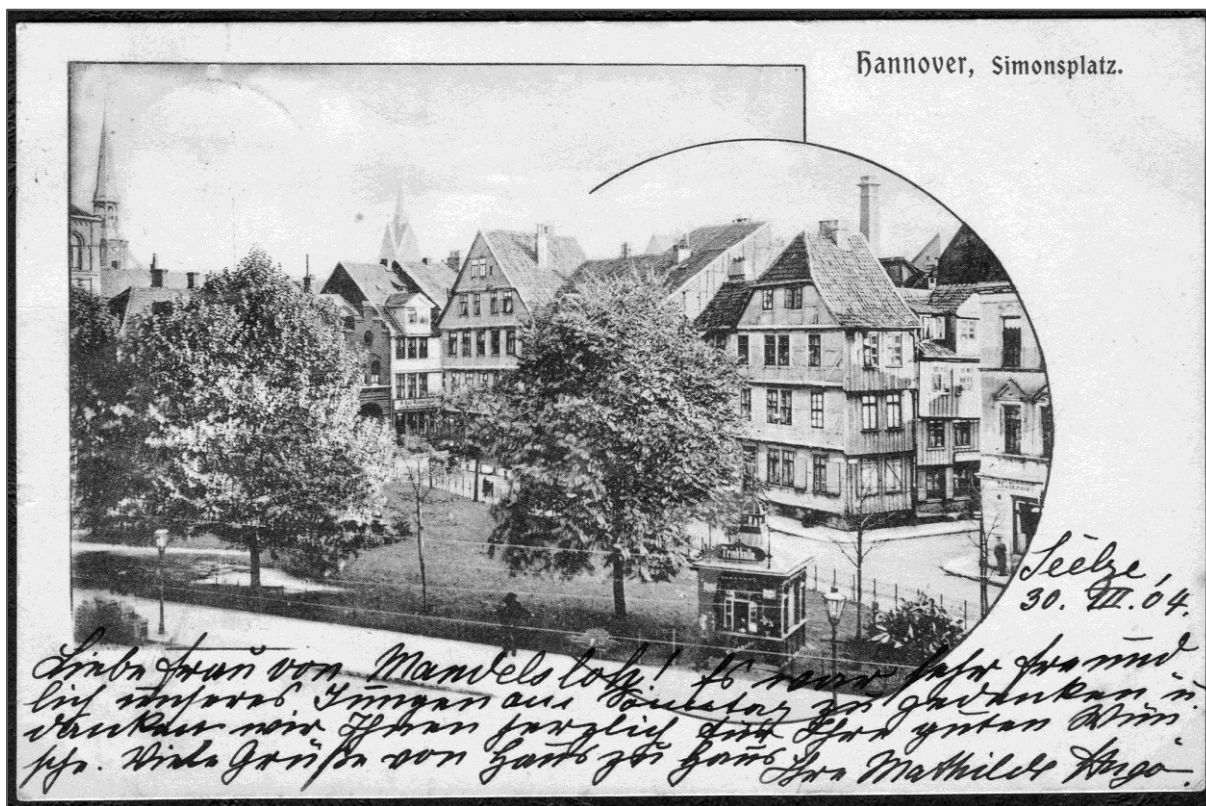 Hannover, Simonsplatz.
Trinkhalle
Seelze,
30. III. 04.
Liebe Frau von Mandelsloh! Es war sehr freund
lich unseres Jungen am Sonntag zu gedenken u.
danken wir Ihnen herzlich für Ihre guten Wün
sche. Viele Grüße von Haus zu Haus
Ihre Mathilde